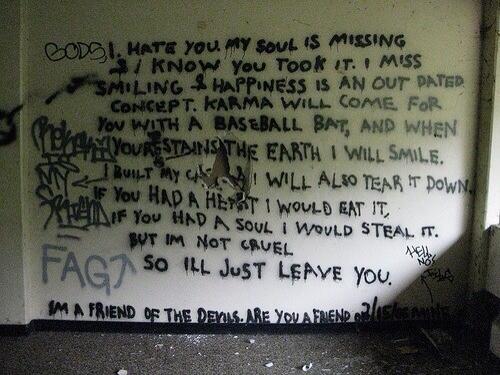 GODS I. HATE YOU. MY SOUL IS MISSING
& I KNOW YOU TOOK IT. I MISS
SMILING & HAPPINESS IS AN OUT DATED
CONCEPT. KARMA WILL COME FOR
YOU WITH A BASEBALL BAT, AND WHEN
YOUR STAINS THE EARTH I WILL SMILE.
I BUILT MY I WILL ALSO TEAR IT DOWN.
IF YOU HAD A HEART I WOULD EAT IT,
IF YOU HAD A SOUL I WOULD STEAL IT.
BUT IM NOT CRUEL
SO ILL JUST LEAVE YOU.
IM A FRIEND OF THE DEVILS. ARE YOU A FRIEND
MY
FRIEND
FAG
HELL
NO!